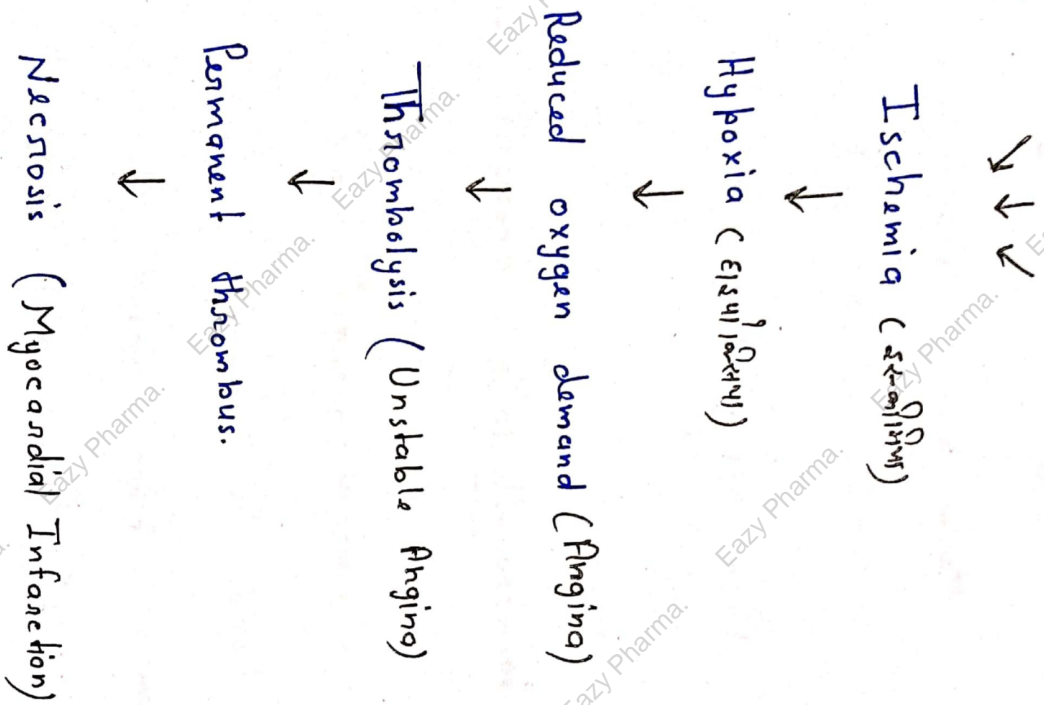 Ischemia (इस्कीमिया)
Hypoxia (हाइपोक्सिया)
Reduced oxygen demand (Angina)
Thrombolysis (Unstable Angina)
Permanent thrombus.
Necrosis (Myocardial Infarction)
Eazy Pharma.
Eazy Pharma.
Eazy Pharma.
Eazy Pharma.
Eazy Pharma.
Eazy Pharma.